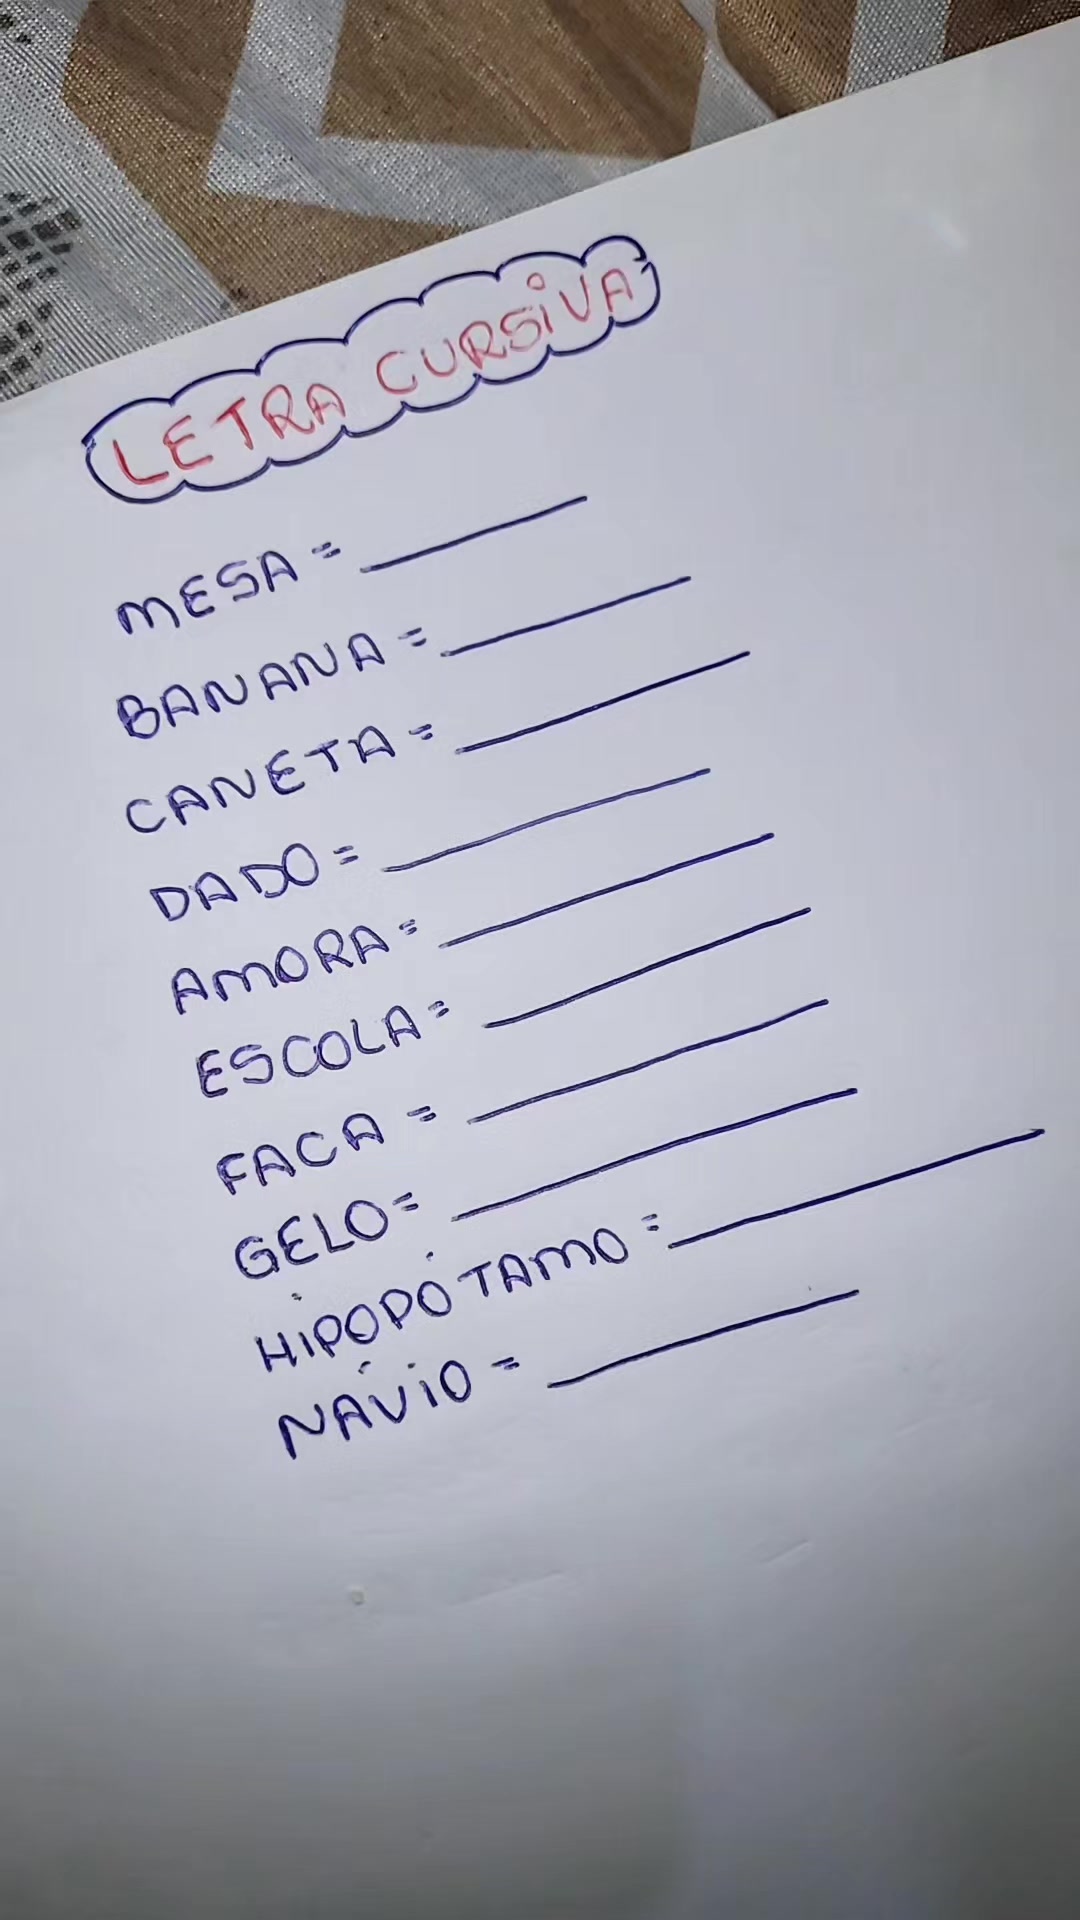 LETRA CURSIVA
MESA = ________
BANANA = ________
CANETA = ________
DADO = ________
AMORA = ________
ESCOLA = ________
FACA = ________
GELO = ________
HIPOPÓTAMO = ________
NÁVIO = ________